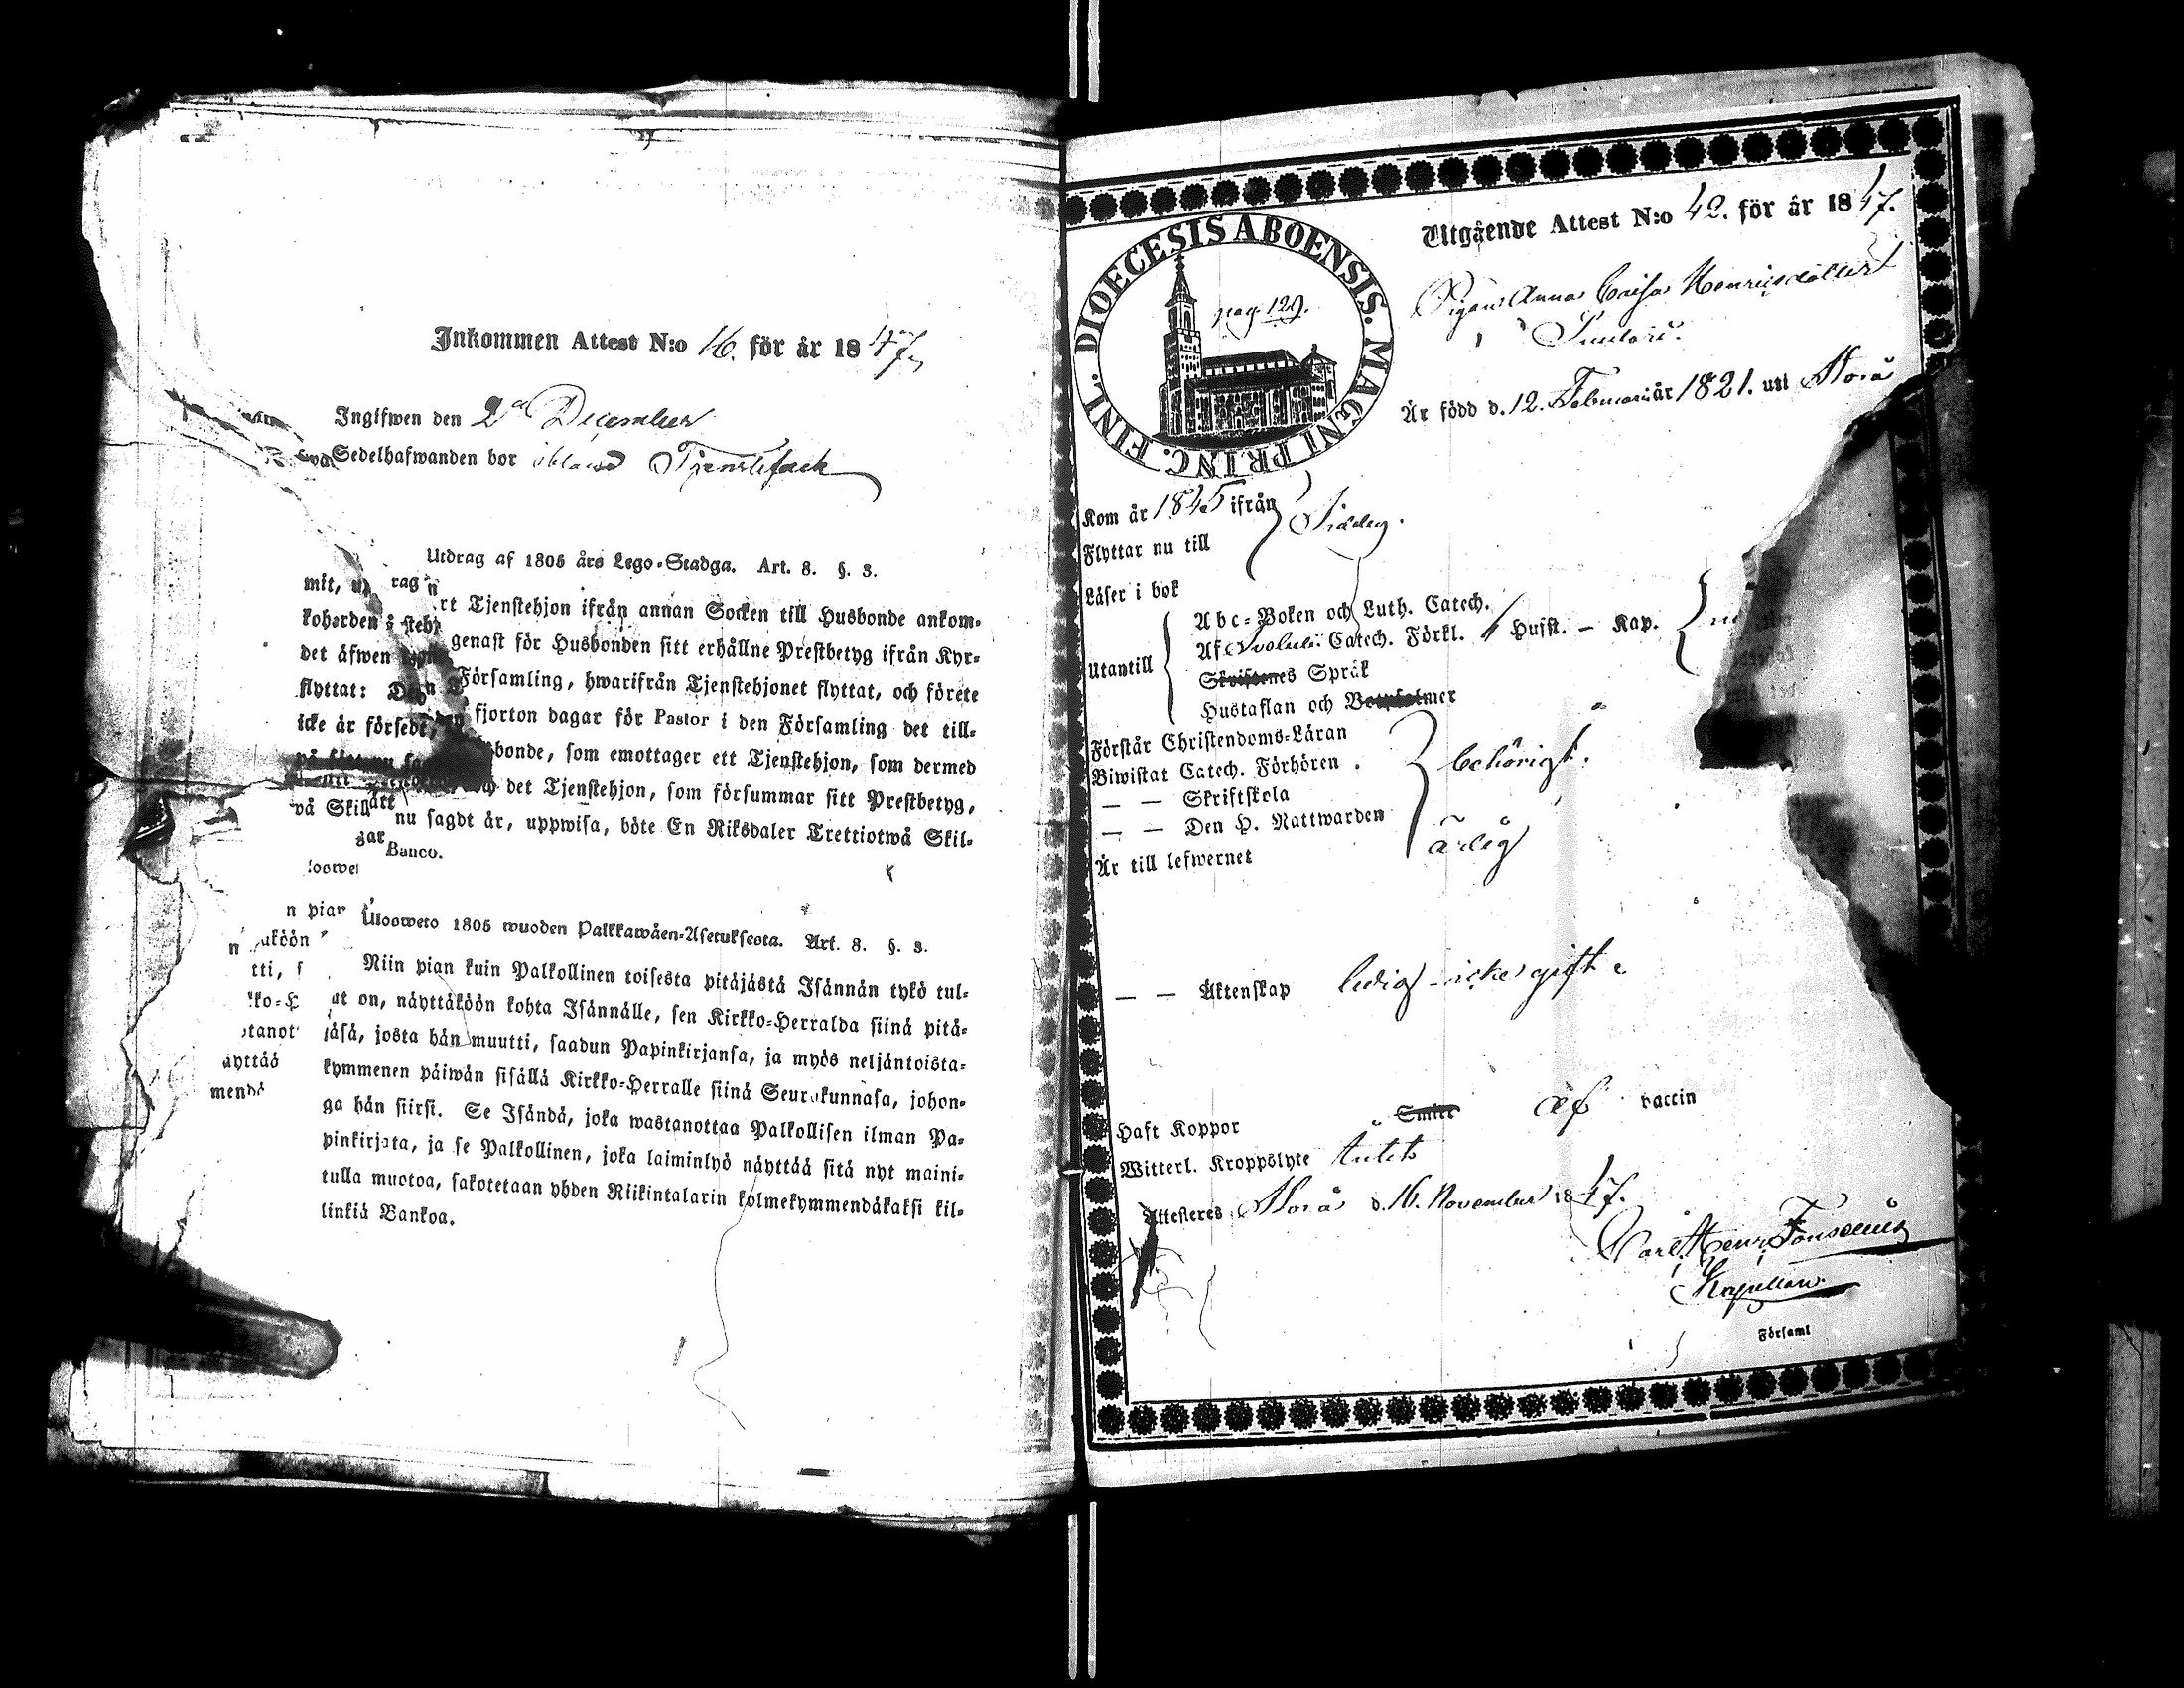 Inkommen Attest N:o 16. för år 1847.
Ingifwen den 2a December
Sedelhafwanden bor ibland Tjenstefolck
Utdrag af 1805 års Lego-Stadga. Art. 8. §. 3.
mit, rag n
rt Tjenstehjon ifrån annan Socken till Husbonde ankom-
genast för Husbonden sitt erhållne Prestbetyg ifrån Kyr-
det äfwen
Församling, hwarifrån Tjenstehjonet flyttat, och förete
flyttat:
fjorton dagar för Pastor i den Församling det till-
icke är försedt,
bonde, som emottager ett Tjenstehjon, som dermed
det Tjenstehjon, som försummar sitt Prestbetyg,
på Skill att
nu sagdt är, uppwisa, böte En Riksdaler Trettiotwå Skil-
gar
Banco.
n pian
Ulosweto 1805 wuoden Palkkawäen-Asetuksesta. Art. 8. §. 3.
Niin pian kuin Palkollinen toisesta pitäjästä Isännän tykö tul-
tti, f
at on, näyttäköön kohta Isännälle, sen Kirkko-Herralda siinä pitä-
jäsä, josta hän muutti, saadun Papinkirjansa, ja myös neljäntoista-
kymmenen päiwän sisällä Kirkko-Herralle siinä Seurakunnasa, johon-
ga hän siirsi. Se Isändä, joka wastanottaa Palkollisen ilman Pa-
pinkirjata, ja se Palkollinen, joka laiminlyö näyttää sitä nyt maini-
tulla muotoa, sakotetaan yhden Riikintalarin kolmekymmendäkaksi kil-
linkiä Bankoa.
DIOECESIS ABOENSIS. MAGNI PRINC. FINL.
pag. 129.
Utgående Attest N:o 42. för år 1847.
Pigan Anna Caisa Henriksdotter
Är född d. 12. Februari år 1821. uti Storå
Kom år 1845 ifrån
Flyttar nu till
Sideby.
Läser i bok
Utantill
Abc-Boken och Luth. Catech.
Af Svebelii Catech. Förkl. Husst. — Kap.
Skriftenes Språk
Hustaflan och Botpsalmer
Förstår Christendoms-Läran
Biwistat Catech. Förhören .
— — Skriftskola
— — Den H. Nattwarden
behörigt.
Är till lefwernet ärlig
— — Äktenskap ledig icke gift.
Haft Koppor Smitt af vaccin
Witterl. Kroppslyte
Attesteres Storå d. 16. November 1847.
Carl Henr. Fonselius
Kapellan.
Församl